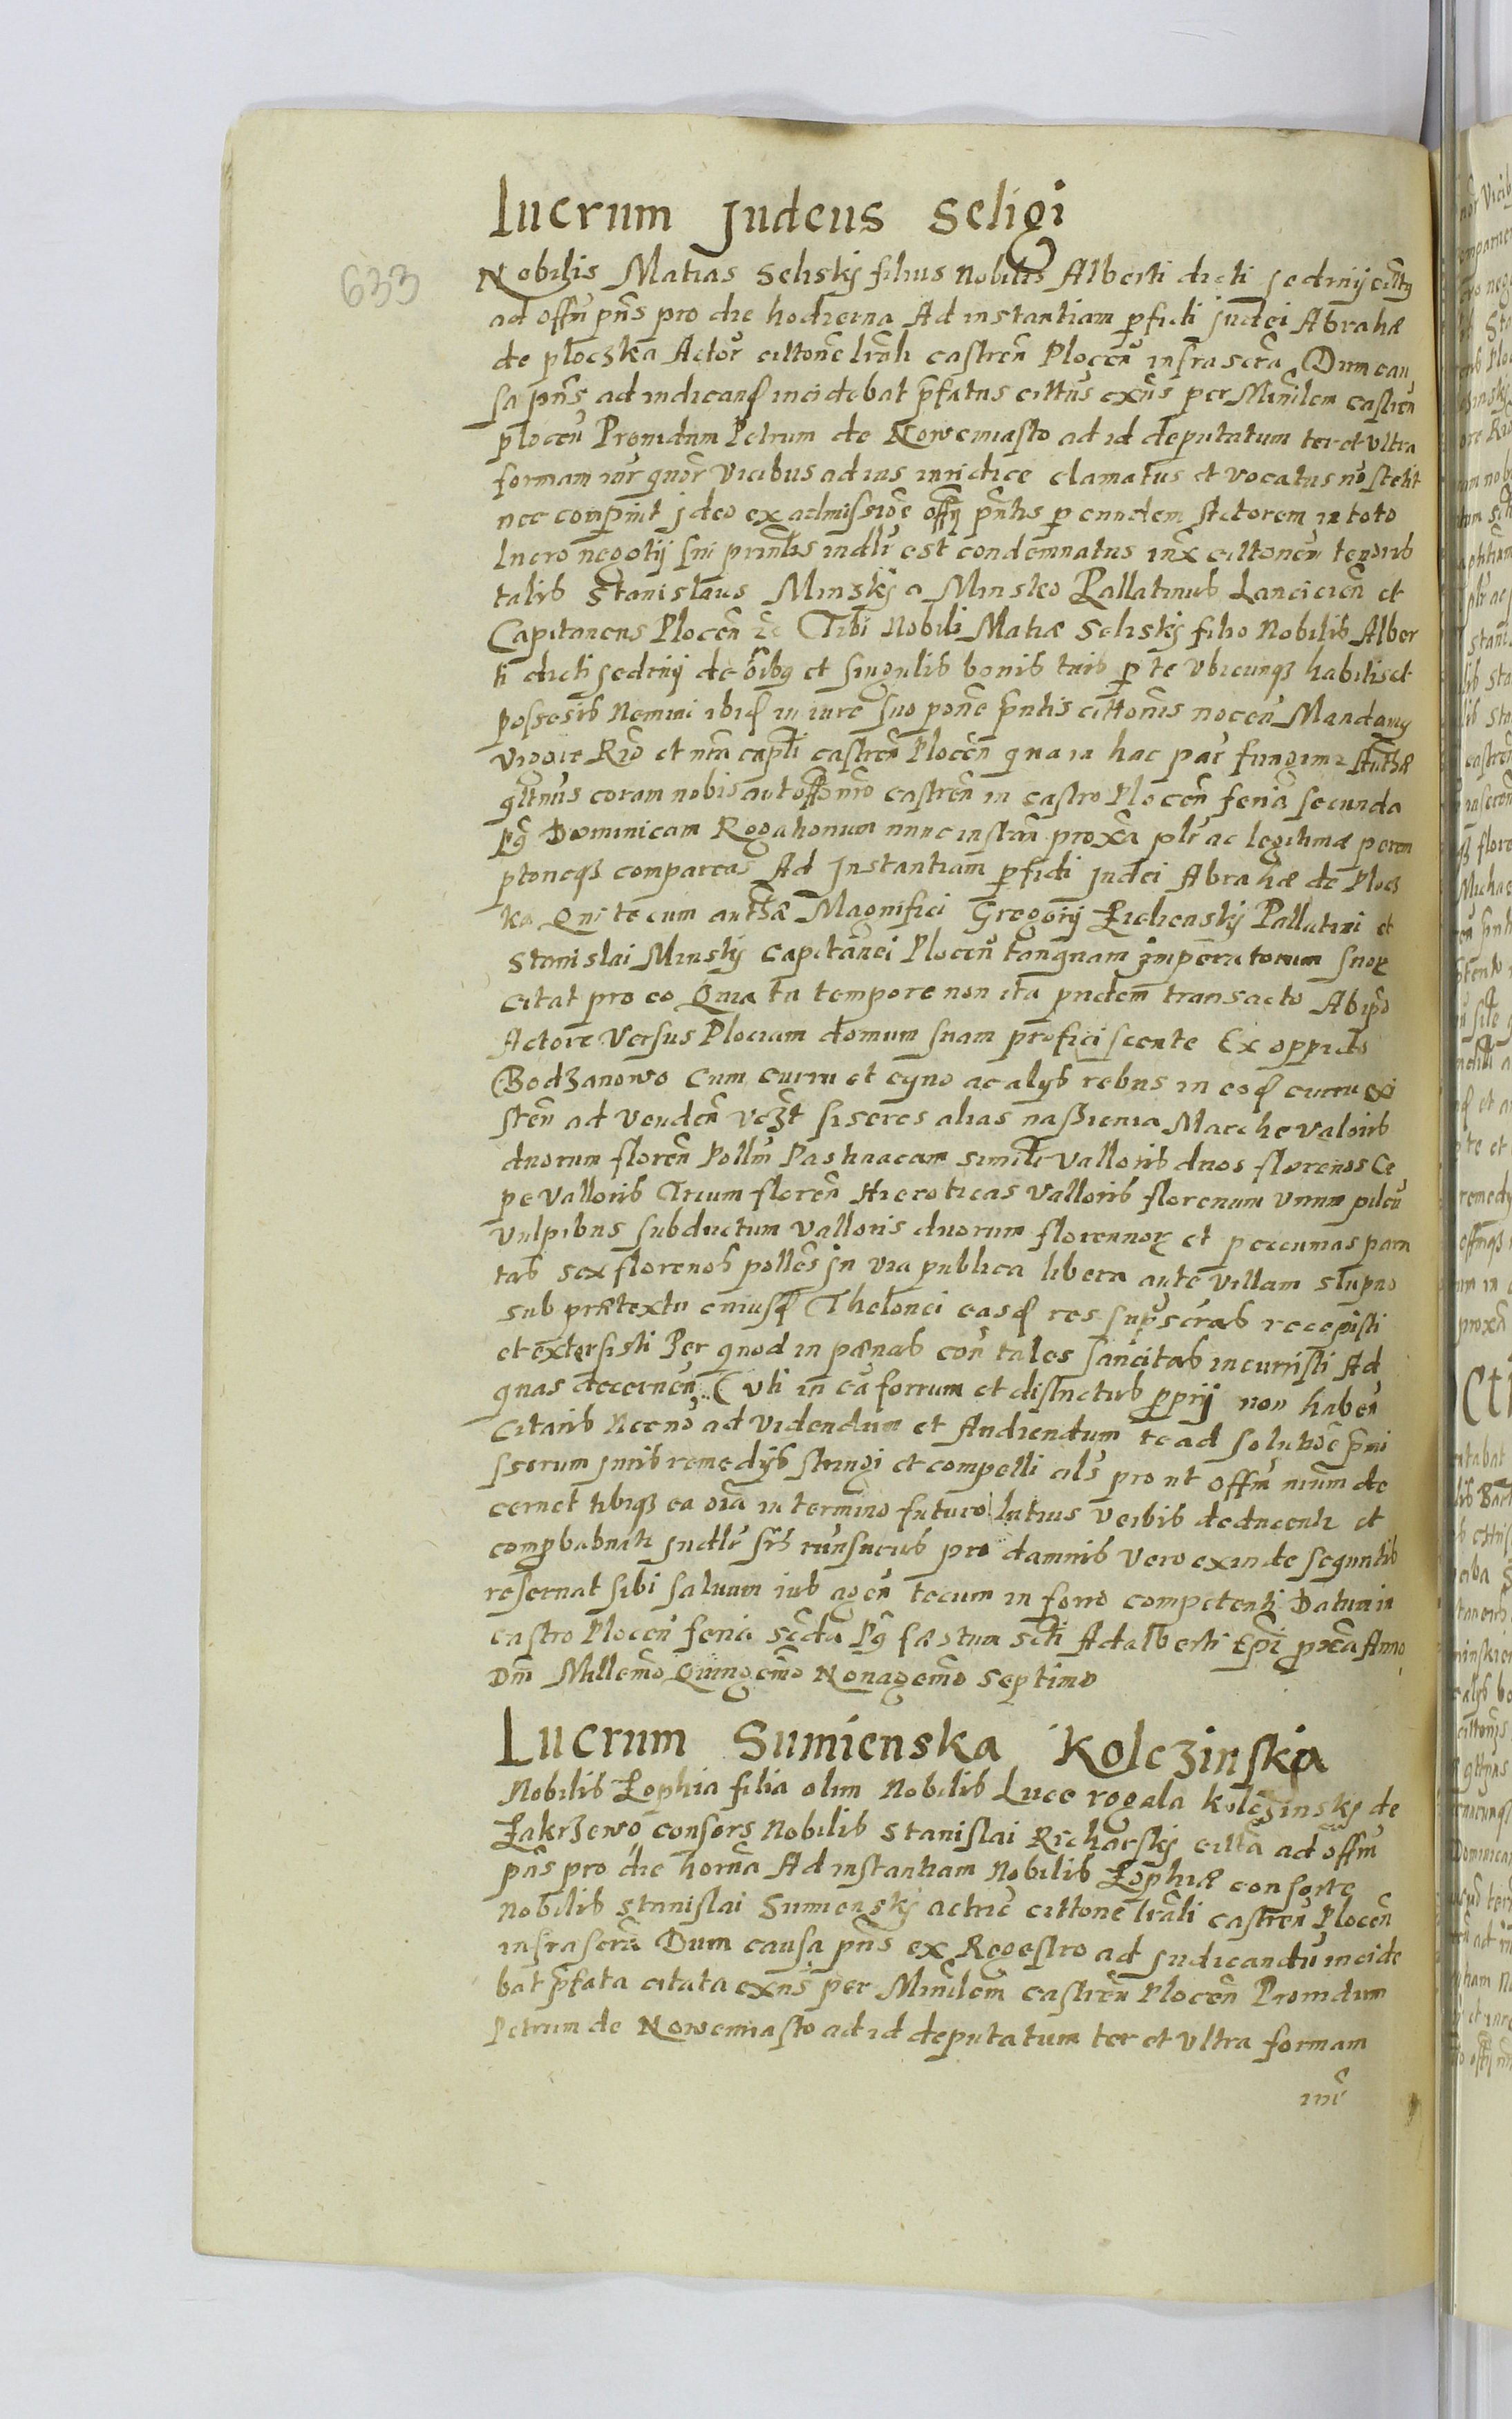 lucrum Judeus Seligi
633
Nobilis Matias Selisky filius Nobilis Alberti dicti Jedrnij cittus
ad offm pns pro die hodierna Ad instantiam pfidi Judei Abrahæ
de ploczka Actor cittone lrali castren Plocen infrascra Dum cau
sa pns ad iudicand incidebat pfatus cittus exns per Minilem castren
plocen Providum Petrum de Nowemiasto ad id deputatum ter et Ultra
formam iur quor vicibus ad ius iuridice clamatus et vocatus no stetit
nec comparuit jdeo ex admissioe offij pntis p eundem Actorem in toto
lucro negotij sui printis indlr est condemnatus inx cittonem tenoris
talis Stanislaus Minskij a Minsko Pallatinus Lancicien et
Capitaneus Plocen etc Tibi Nobili Matiæ Seliskij filio Nobilis Alber
ti dicti Jedrnij de oibus et singulis bonis tuis p te Vbicunqz habitis et
possessis Nemini ibid in iure suo pone pntis cittonis nocen Mandamus
vigore Rio et nra capli castren Plocen qua in hac par fungimur Auth
qtenus coram nobis aut offo nro castren in castro Plocen feria secunda
Pq Dominicam Rogationum nunc instan proxa plr ac legitimæ peren
ptoneqz compareas Ad Instantiam pfidi Judei Abrahæ de Plocz
ka Qui te cum authæ Magnifici Gregorij Zielienskij Pallatini et
Stanislai Minskij Capitanei Plocen tanquam Imperatorum suor
citat pro eo Quia tu tempore non ita pridem transacto Ab ipso
Actore Versus Plociam domum suam proficiscente Ex oppido
Bodzanowo Cum curru et eqno ac alijs rebus in eod curru exi
sten ad venden vezt siseres alias nassienia Marche valoris
duorum floren Pollm Pastinacam simili Valloris duos florenos Ce
pe Valloris Trium floren Hieroticas Valloris florenum Vnum pileu
Vulpibus subductum Valloris duorum florennor et peccunias para
tas sex florenos polles in via publica libera ante villam Slupno
sub prætextu cuiusd Thelonei easd res suprscras recepisti
et extersisti Per quod in pænas con tales sancitas incurristi Ad
quas decernen Cuti in ea forrum et districtus pprij non haben
Citaris Necno ad videndum et Audiendum te ad solutioe pmi
ssorum juris remedijs stringi et compelli als pro ut offm nrum de
cernet tibiqz ea oia in termino futuro latius verbis deducentr et
compbabuntr Judlr sris runsucus pro damnis Vero exinde sequntis
reseruat sibi saluum ius agen tecum in foro competenti Datum in
castro Plocen feria scda Pq fæstum scti Adalberti Epi pxa Anno
Dni Millemo Quingemo Nonagemo Septimo
Lucrum Sumienska Kolczinska
Nobilis Zophia filia olim Nobilis Luce rogala Kolczinskij de
Zakrzewo consors Nobilis Stanislai Richarskij citta ad offm
pns pro die horna Ad instantiam Nobilis Zophiæ consorte
Nobilis Stanislai Sumienskij actric cittone lrali castren Plocen
infrascra Dum causa pns ex Regestro ad Judicandu incide
bat pfata citata exns per Minilem castren Plocen Providum
Petrum de Nowemiasto ad id deputatum ter et Ultra formam
iur